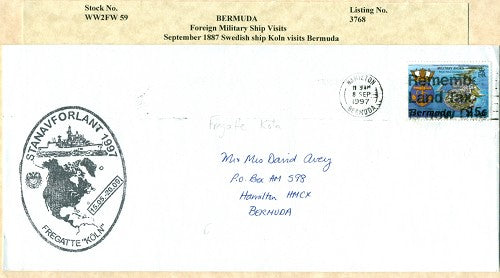 Stock No.
WW2FW 59
BERMUDA
Foreign Military Ship Visits
September 1887 Swedish ship Koln visits Bermuda
Listing No.
3768
HAMILTON
8 SEP
1997
BERMUDA
Remembe
Land Tax
Bermuda
15c
Fregatte Köln
STANAVFORLANT 1997
15.05.-20.09
FREGATTE "KÖLN"
Mr & Mrs David Avey
P.O. Box AM 598
Hamilton HMCX
BERMUDA